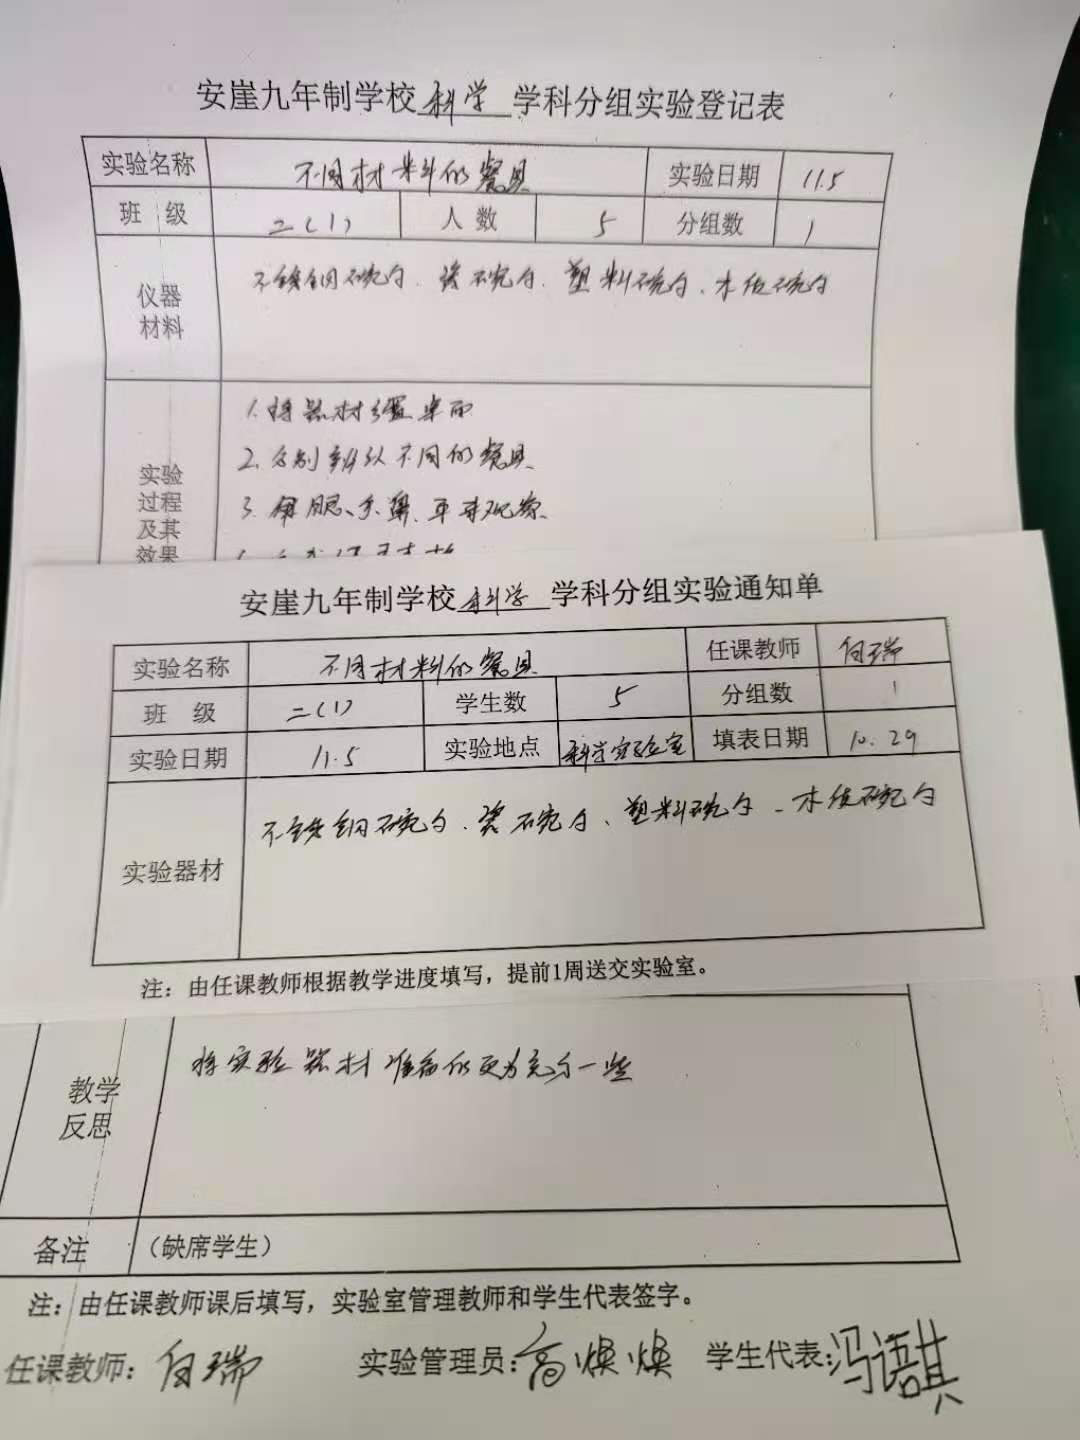 安崖九年制学校科学学科分组实验登记表
实验名称 不同材料的餐具 实验日期 11.5
班 级 二(1) 人数 5 分组数 1
仪器材料 不锈钢碗勺、瓷碗勺、塑料碗勺、木质碗勺
实验过程及其效果
1. 将器材摆桌面
2. 分别辨认不同的餐具
3. 用眼、手、鼻、耳等观察
安崖九年制学校科学学科分组实验通知单
实验名称 不同材料的餐具 任课教师 白瑞
班 级 二(1) 学生数 5 分组数 1
实验日期 11.5 实验地点 科学实验室 填表日期 10.29
实验器材 不锈钢碗勺、瓷碗勺、塑料碗勺、木质碗勺
注：由任课教师根据教学进度填写，提前1周送交实验室。
教学反思 将实验器材准备的更为充分一些
备注 （缺席学生）
注：由任课教师课后填写，实验室管理教师和学生代表签字。
任课教师：白瑞 实验管理员：高焕焕 学生代表：冯语其